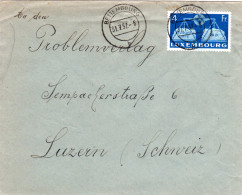 BETTEMBOURG
31.7.51.-9
4 Fr
LUXEMBOURG
An den
Problemverlag
Sempacherstraße 6
Luzern (Schweiz)